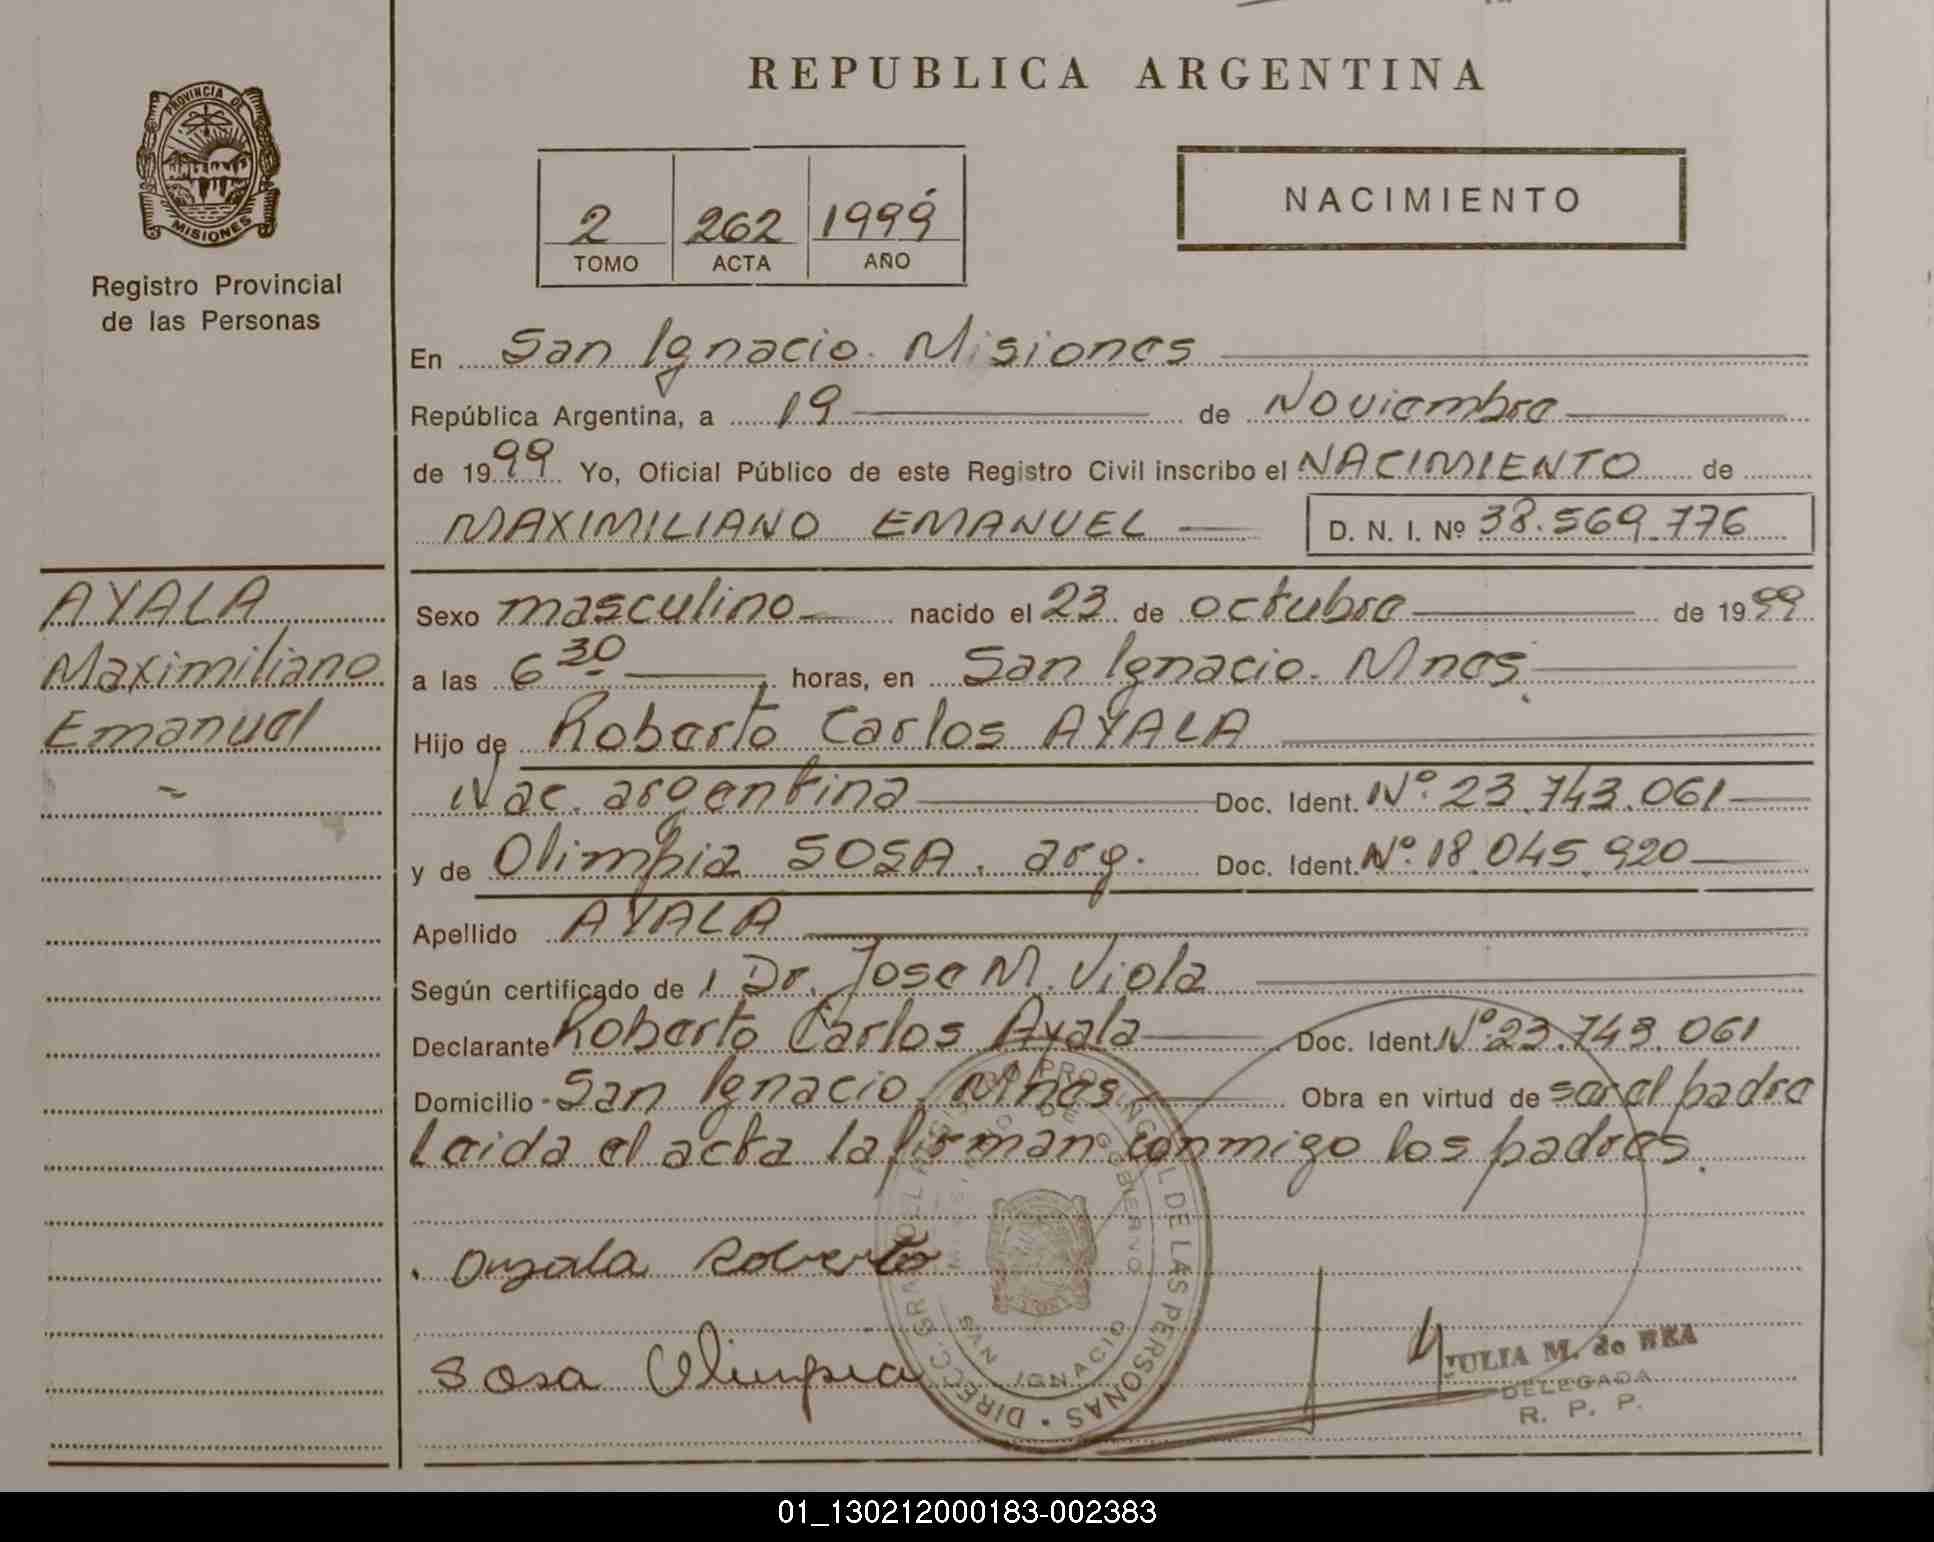 REPUBLICA ARGENTINA
PROVINCIA DE
MISIONES
Registro Provincial
de las Personas
2 262 1999
TOMO ACTA AÑO
NACIMIENTO
En San Ignacio. Misiones
República Argentina, a 19 de Noviembre
de 1999 Yo, Oficial Público de este Registro Civil inscribo el NACIMIENTO de
MAXIMILIANO EMANUEL D. N. I. Nº 38.569.776
AYALA
Maximiliano
Emanuel
Sexo masculino nacido el 23 de octubre de 1999
a las 6 30 horas, en San Ignacio. Mnes.
Hijo de Roberto Carlos AYALA
Nac. argentina Doc. Ident. Nº 23.743.061
y de Olimpia SOSA. arg. Doc. Ident. Nº 18.045.920
Apellido AYALA
Según certificado de l Dr. Jose M. Viola
Declarante Roberto Carlos Ayala Doc. Ident. Nº 23.743.061
Domicilio San Ignacio. Mnes Obra en virtud de ser el padre
Leida el acta la firman conmigo los padres.
Roberto
Sosa Olimpia
DE LAS PERSONAS
SAN IGNACIO
JULIA M. de
DELEGADA
R. P. P.
01_130212000183-002383